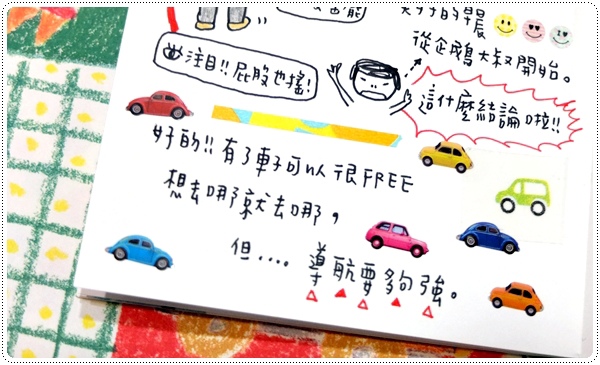 從企鵝大叔開始。
注目!!屁股也搖!
這什麼結論啦!!
好的!!有了車子可以很FREE
想去哪就去哪,
但....導航要夠強。